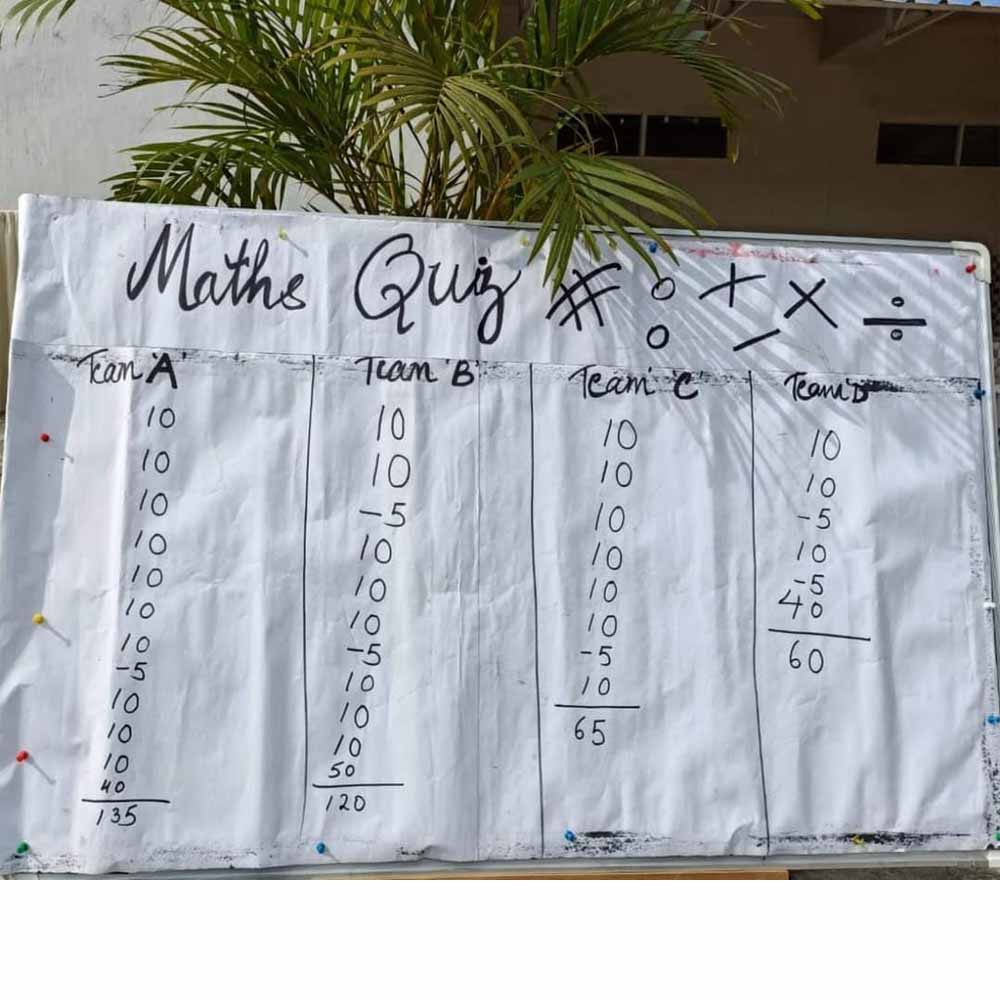 Maths Quiz # : + - × ÷
Team 'A'
10
10
10
10
10
10
10
-5
10
10
10
40
135
Team 'B'
10
10
-5
10
10
10
-5
10
10
10
50
120
Team 'C'
10
10
10
10
10
10
-5
10
65
Team 'D'
10
10
-5
10
-5
40
60